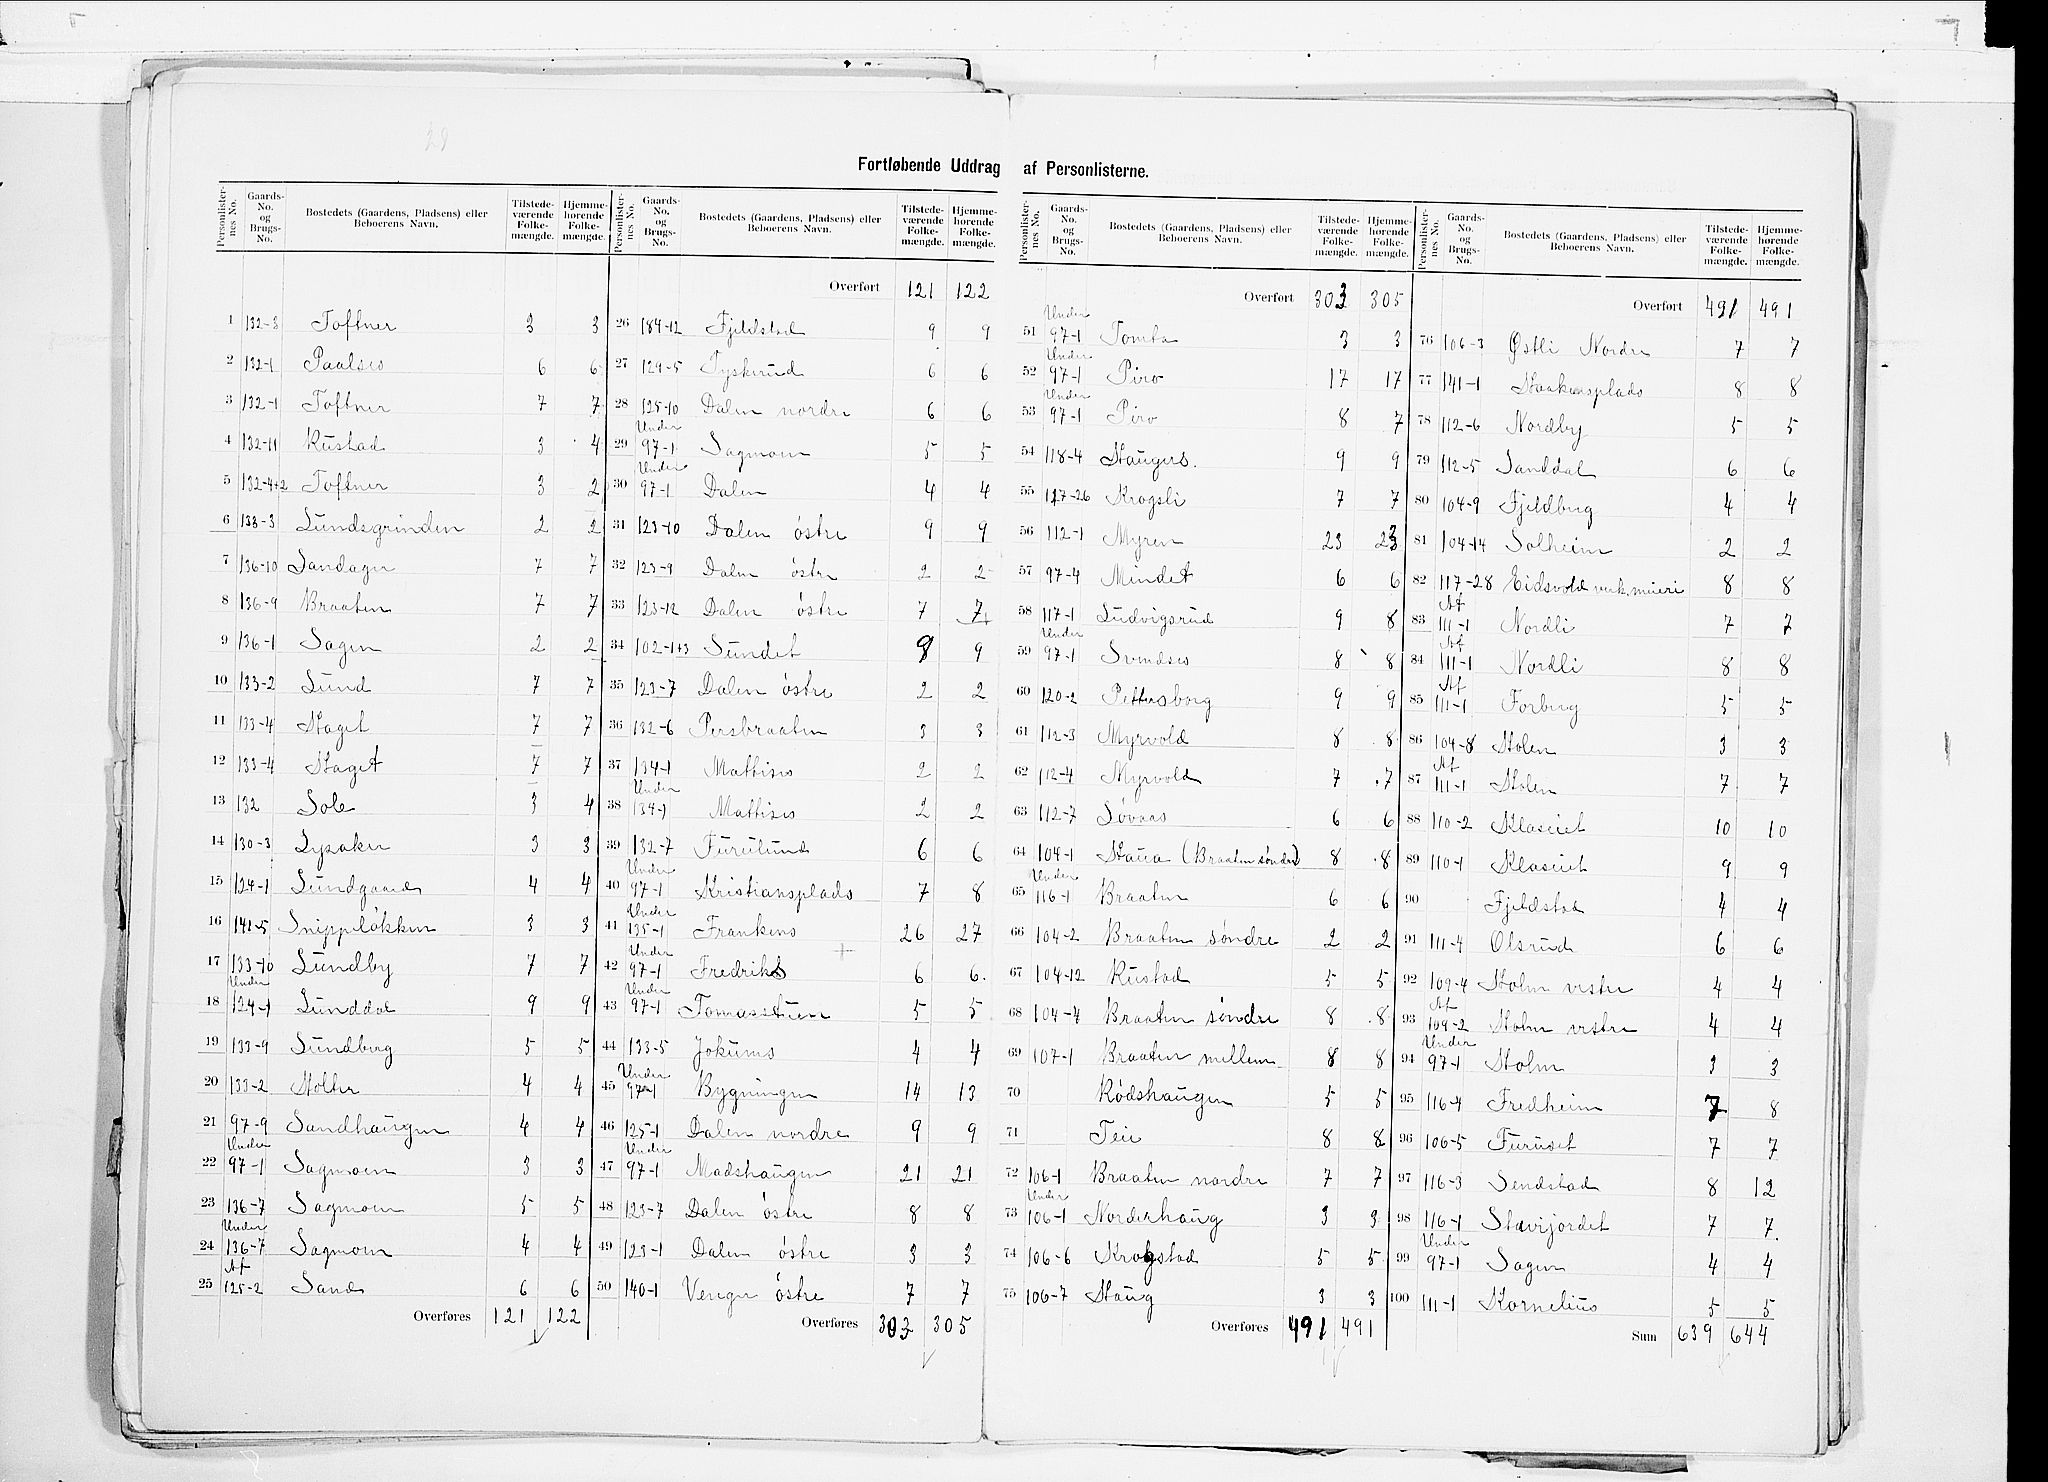 29
Fortløbende Uddrag af Personlisterne.
Personlisternes No. Gaards-No. og Brugs-No. Bostedets (Gaardens, Pladsens) eller Beboerens Navn. Tilstedeværende Folkemængde. Hjemmehørende Folkemængde.
1 132-3 Toftner 3 3
2 132-1 Paalses 6 6
3 132-1 Toftner 7 7
4 132-11 Rustad 3 4
5 132-4+2 Toftner 3 2
6 133-3 Lundsgrinden 2 2
7 136-10 Sandager 7 7
8 136-9 Braaten 7 7
9 136-1 Sagen 2 2
10 133-2 Lund 7 7
11 133-4 Haget 7 7
12 133-4 Haget 7 7
13 132 Sole 3 4
14 130-3 Lysaker 3 3
15 124-1 Lundgaard 4 4
16 141-5 Snippløkken 3 3
17 133-10 Lundby 7 7
18 Under 124-1 Lunddal 9 9
19 133-9 Lundberg 5 5
20 133-2 Holter 4 4
21 97-9 Sandhaugen 4 4
22 Under 97-1 Sagmoen 3 3
23 136-7 Sagmoen 5 5
24 Under 136-7 Sagmoen 4 4
25 Af 125-2 Sand 6 6
Overføres 121 122
Personlisternes No. Gaards-No. og Brugs-No. Bostedets (Gaardens, Pladsens) eller Beboerens Navn. Tilstedeværende Folkemængde. Hjemmehørende Folkemængde.
Overført 121 122
26 184-12 Fjeldstad 9 9
27 129-5 Tyskerud 6 6
28 125-10 Dalen nordre 6 6
29 Under 97-1 Sagmoen 5 5
30 Under 97-1 Dalen 4 4
31 123-10 Dalen østre 9 9
32 123-9 Dalen østre 2 2
33 123-12 Dalen østre 7 7
34 102-1+3 Sundet 8 9
35 123-7 Dalen østre 2 2
36 132-6 Persbraaten 3 3
37 134-1 Mattises 2 2
38 Under 134-1 Mattises 2 2
39 132-7 Furulund 6 6
40 Under 97-1 Kristiansplads 7 8
41 Under 135-1 Frankens 26 27
42 Under 97-1 Fredriks 6 6
43 Under 97-1 Tomasstuen 5 5
44 133-5 Jokums 4 4
45 Under 97-1 Bygningen 14 13
46 125-1 Dalen nordre 9 9
47 Under 97-1 Madshaugen 21 21
48 123-7 Dalen østre 8 8
49 123-1 Dalen østre 3 3
50 140-1 Venger østre 7 7
Overføres 303 305
Personlisternes No. Gaards-No. og Brugs-No. Bostedets (Gaardens, Pladsens) eller Beboerens Navn. Tilstedeværende Folkemængde. Hjemmehørende Folkemængde.
Overført 303 305
51 Under 97-1 Tomta 3 3
52 Under 97-1 Piro 17 17
53 Under 97-1 Piro 8 7
54 118-4 Haugers. 9 9
55 117-26 Krogsli 7 7
56 112-1 Myren 23 23
57 97-4 Mindet 6 6
58 117-1 Ludvigsrud 9 8
59 Under 97-1 Svendses 8 8
60 120-2 Pettersborg 9 9
61 112-3 Myrvold 8 8
62 112-4 Myrvold 7 7
63 112-7 Søvaas 6 6
64 104-1 Haua (Braaten søndre) 8 8
65 Under 116-1 Braaten 6 6
66 104-2 Braaten søndre 2 2
67 104-12 Rustad 5 5
68 104-4 Braaten søndre 8 8
69 107-1 Braaten mellem 8 8
70 Rødshaugen 5 5
71 Teie 8 8
72 106-1 Braaten nordre 7 7
73 Under 106-1 Norderhaug 3 3
74 106-6 Krogstad 5 5
75 106-7 Haug 3 3
Overføres 491 491
Personlisternes No. Gaards-No. og Brugs-No. Bostedets (Gaardens, Pladsens) eller Beboerens Navn. Tilstedeværende Folkemængde. Hjemmehørende Folkemængde.
Overført 491 491
76 106-3 Østli Nordre 7 7
77 141-1 Haakensplads 8 8
78 112-6 Nordby 5 5
79 112-5 Sanddal 6 6
80 104-9 Fjeldberg 4 4
81 104-14 Solheim 2 2
82 117-28 Eidsvold verk. mieri 8 8
83 Af 111-1 Nordli 7 7
84 Af 111-1 Nordli 8 8
85 Af 111-1 Forberg 5 5
86 104-8 Holen 3 3
87 Af 111-1 Holen 7 7
88 110-2 Klaseiet 10 10
89 110-1 Klaseiet 9 9
90 Fjeldstad 4 4
91 111-4 Olsrud 6 6
92 109-4 Holm vestre 4 4
93 Af 109-2 Holm vestre 4 4
94 Under 97-1 Holm 3 3
95 116-4 Fredheim 7 8
96 106-5 Furuset 7 7
97 116-3 Sendstad 8 12
98 116-1 Stavijordet 7 7
99 Under 97-1 Sagen 4 4
100 111-1 Kornelius 5 5
Sum 639 644